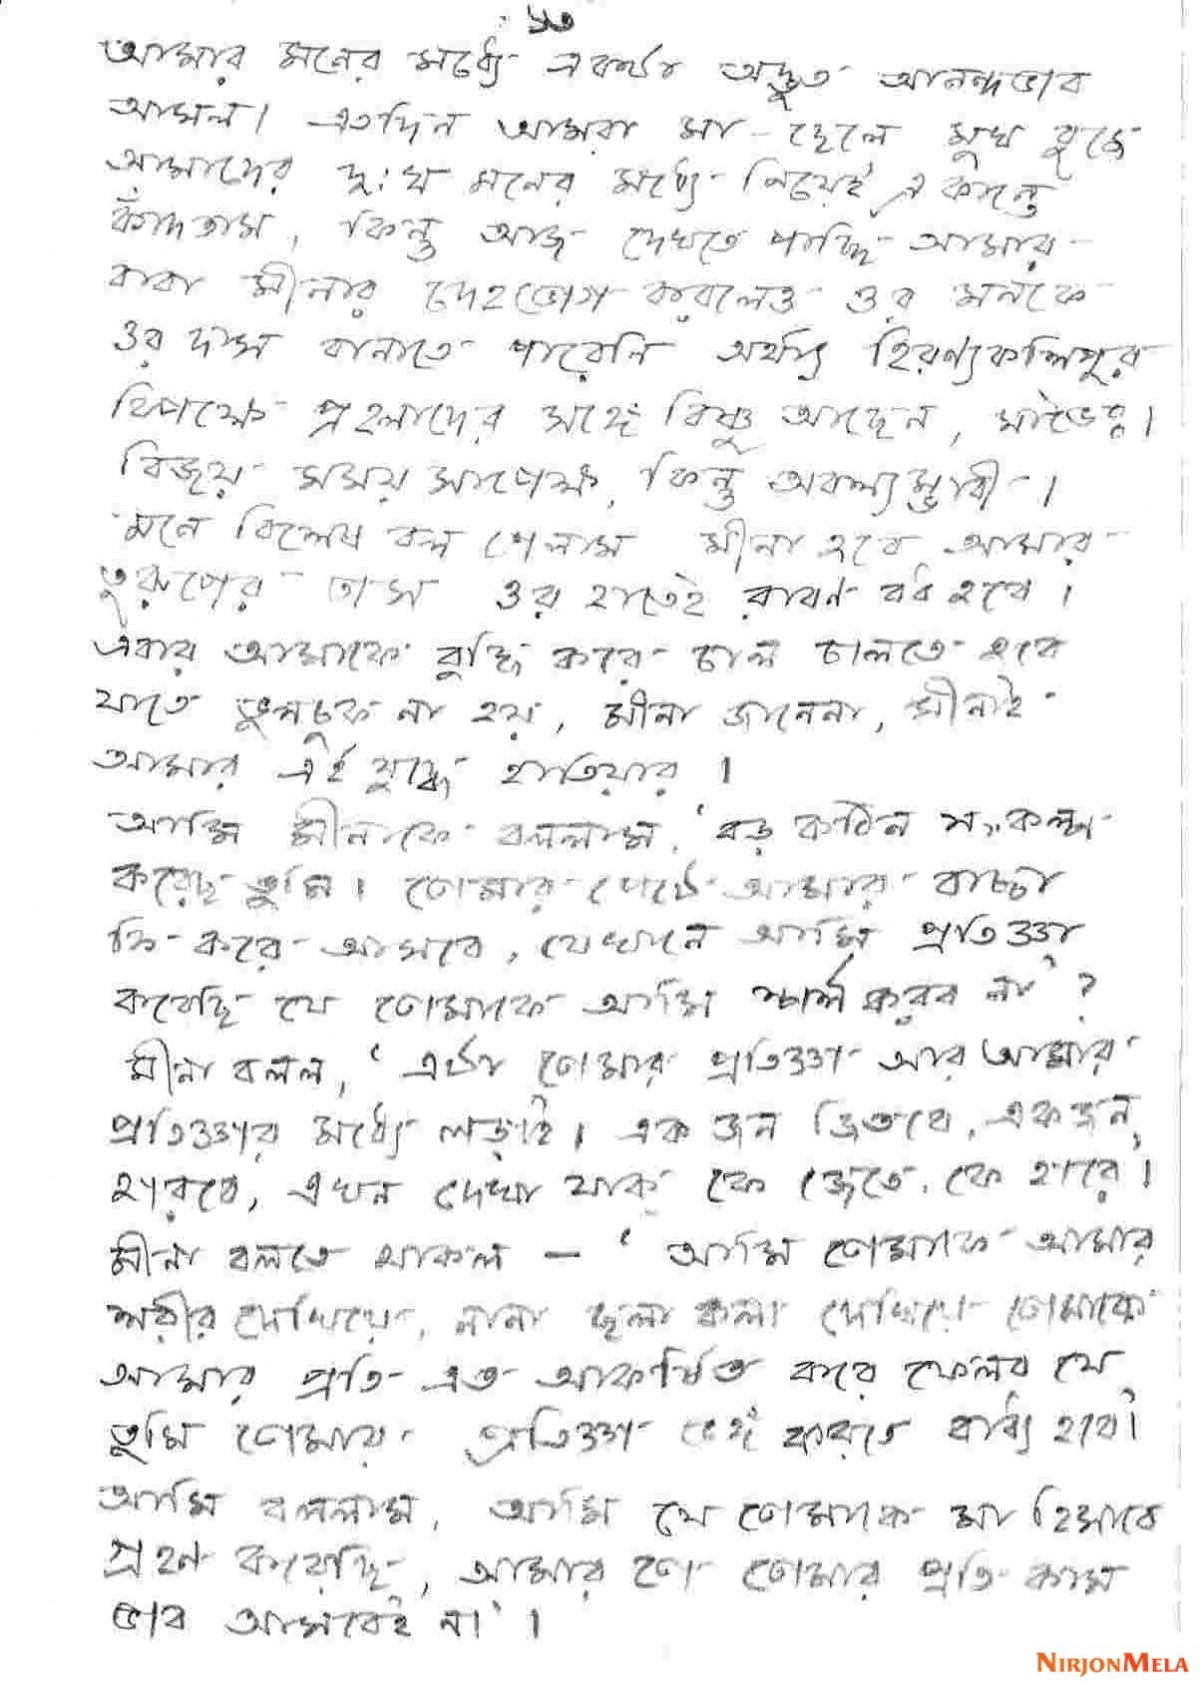 ১৩
আমার মনের মধ্যে একথা অদ্ভুত আনন্দভাব
আসল। এতদিন আমরা মা-ছেলে মুখ বুজে
আমাদের দুঃখ মনের মধ্যে নিয়েই একান্তে
কাঁদতাম, কিন্তু আজ দেখতে পাচ্ছি আমার
বাবা মীনার দেহভোগ করলেও ওর মনকে
ওর দাস বানাতে পারেনি অর্থাৎ হিরণ্যকশিপুর
বিপক্ষে প্রহলাদের সঙ্গে বিষ্ণু আছেন, মাভৈঃ।
বিজয় সময় সাপেক্ষ, কিন্তু অবশ্যম্ভাবী।
মনে বিশেষ বল পেলাম মীনা হবে আমার
তুরুপের তাস ওর হাতেই রাবণ বধ হবে।
এবার আমাকে বুদ্ধি করে চাল চালতে হবে
যাতে ভুলচুক না হয়, মীনা জানেনা, মীনাই
আমার এই যুদ্ধে হাতিয়ার।
আমি মীনাকে বললাম, ‘বড় কঠিন সংকল্প
করেছ তুমি। তোমার পেটে আমার বাচ্চা
কি করে আসবে, যেখানে আমি প্রতিজ্ঞা
করেছি যে তোমাকে আমি স্পর্শ করব না’?
মীনা বলল, ‘এটা তোমার প্রতিজ্ঞা আর আমার
প্রতিজ্ঞার মধ্যে লড়াই। এক জন জিতবে, একজন
হারবে, এখন দেখা যাক কে জেতে, কে হারে’।
মীনা বলতে থাকল – ‘আমি তোমাকে আমার
শরীর দেখিয়ে, নানা ছলা কলা দেখিয়ে তোমাকে
আমার প্রতি এত আকর্ষিত করে ফেলব যে
তুমি তোমার প্রতিজ্ঞা ভঙ্গ করতে বাধ্য হবে’।
আমি বললাম, আমি যে তোমাকে মা হিসাবে
গ্রহণ করেছি, আমার তো তোমার প্রতি কাম
ভাব আসবেই না’।
NIRJONMELA